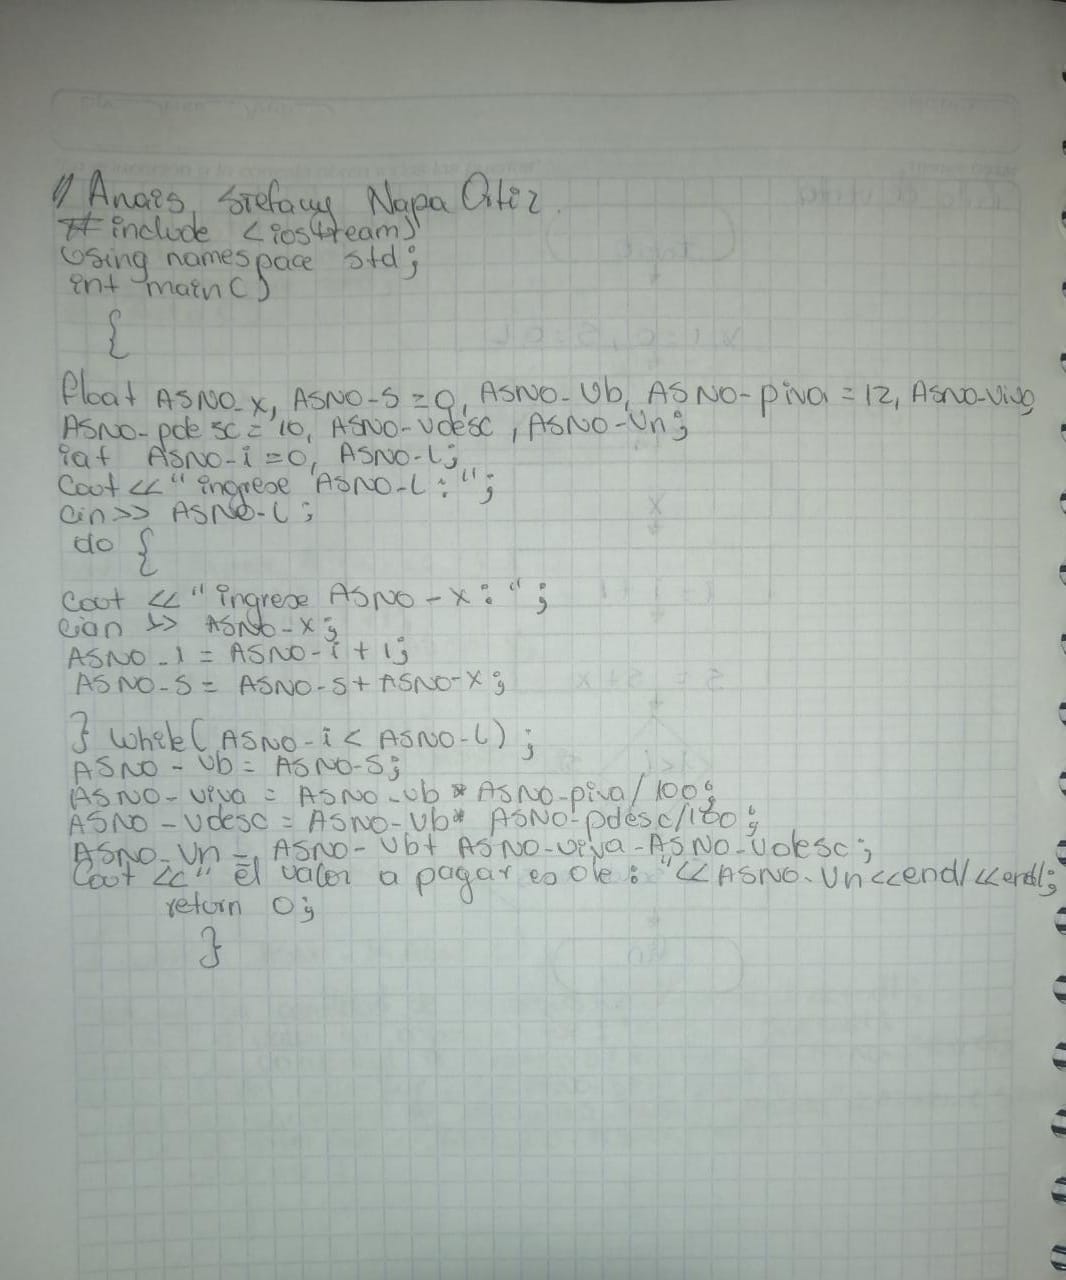 // Anais Stefany Napa Ortiz
# include <iostream>
Using namespace std;
int main()
{
float ASNO-x, ASNO-S=0, ASNO-Vb, ASNO-piva=12, ASNO-viva
ASNO-pdesc=10, ASNO-vdesc, ASNO-Vn;
int ASNO-i=0, ASNO-L;
Cout << "ingrese ASNO-L: ";
Cin>> ASNO-L;
do {
Cout << "ingrese ASNO-x: ";
Cin >> ASNO-x;
ASNO-i = ASNO-i+1;
ASNO-S = ASNO-S+ASNO-x;
} while(ASNO-i< ASNO-L);
ASNO-Vb= ASNO-S;
ASNO-viva = ASNO-vb * ASNO-piva/100;
ASNO-Vdesc = ASNO-Vb* ASNO-pdesc/100;
ASNO-Vn = ASNO-Vb+ ASNO-viva-ASNO-vdesc;
Cout << " el valor a pagar es de: "<< ASNO-Vn<<endl<<endl;
return 0;
}